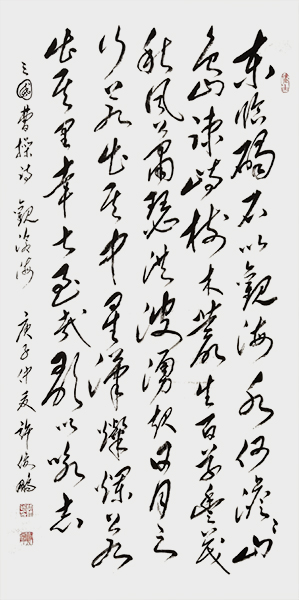 東臨碣石以觀海水何澹〻山
島竦峙樹木叢生百草豐茂
秋風蕭瑟洪波湧起日月之
行若出其中星漢燦爛若
出其里幸甚至哉歌以詠志
三國曹操詩 觀滄海 庚子仲夏許俊鵬